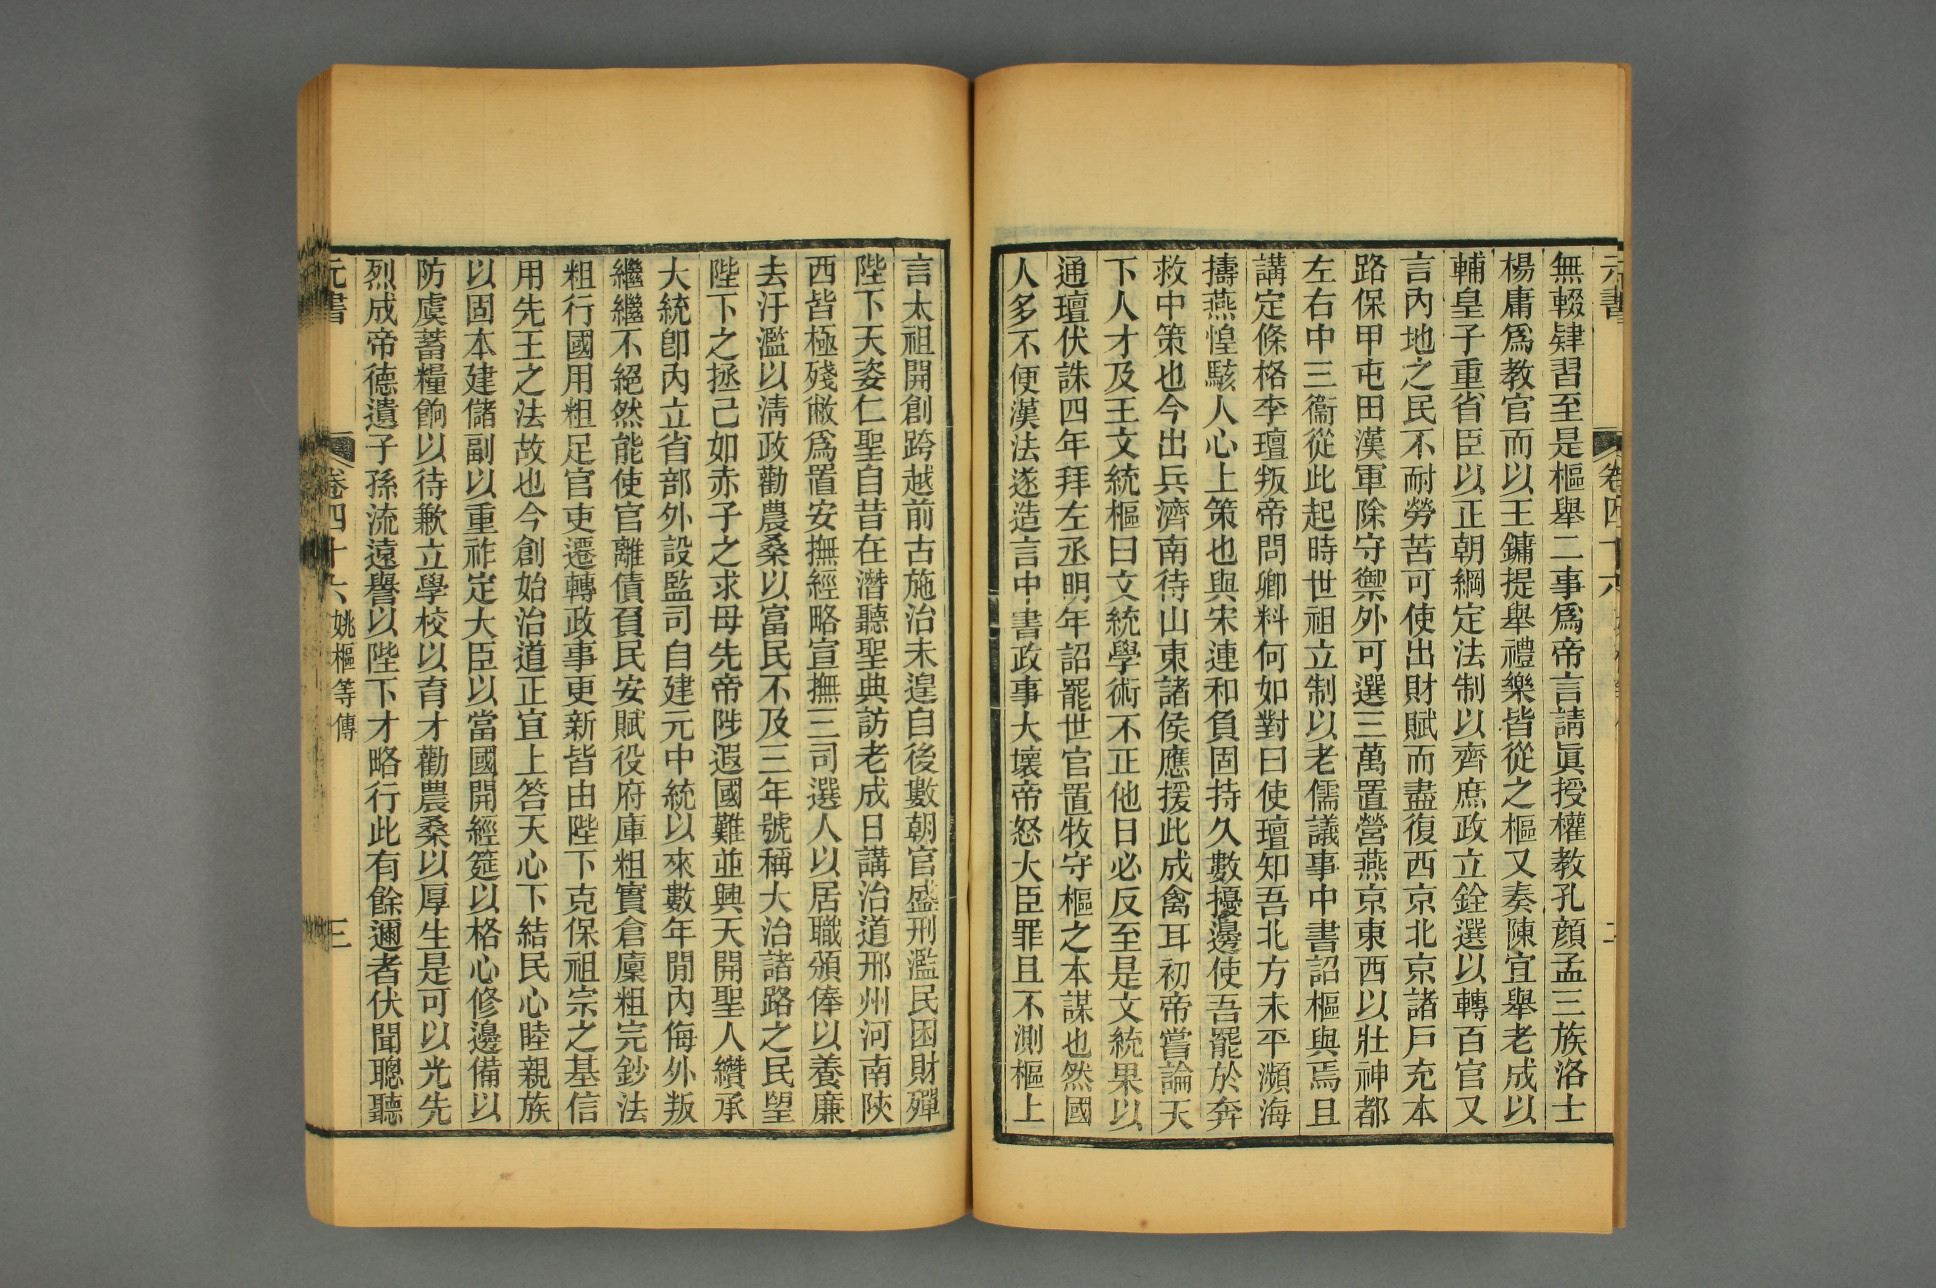 無輟肄習至是樞舉二事爲帝言請眞授權教孔顔孟三族洛士
楊庸爲教官而以王鏞提舉禮樂皆從之樞又奏陳宜舉老成以
輔皇子重省臣以正朝綱定法制以齊庶政立銓選以轉百官又
言內地之民不耐勞苦可使出財賦而盡復西京北京諸戶充本
路保甲屯田漢軍除守禦外可選三萬置營燕京東西以壯神都
左右中三衞從此起時世祖立制以老儒議事中書詔樞與焉且
講定條格李璮叛帝問卿料何如對曰使璮知吾北方未平瀕海
擣燕惶駭人心上策也與宋連和負固持久數擾邊使吾罷於奔
救中策也今出兵濟南待山東諸侯應援此成禽耳初帝嘗論天
下人才及王文統樞曰文統學術不正他日必反至是文統果以
通璮伏誅四年拜左丞明年詔罷世官置牧守樞之本謀也然國
人多不便漢法遂造言中書政事大壞帝怒大臣罪且不測樞上
言太祖開創跨越前古施治未遑自後數朝官盛刑濫民困財殫
陛下天姿仁聖自昔在潛聽聖典訪老成日講治道邢州河南陝
西皆極殘敝爲置安撫經略宣撫三司選人以居職頒俸以養廉
去汙濫以清政勸農桑以富民不及三年號稱大治諸路之民望
陛下之拯己如赤子之求母先帝陟遐國難並興天開聖人纘承
大統卽內立省部外設監司自建元中統以來數年閒內侮外叛
繼繼不絕然能使官離債負民安賦役府庫粗實倉廩粗完鈔法
粗行國用粗足官吏遷轉政事更新皆由陛下克保祖宗之基信
用先王之法故也今創始治道正宜上答天心下結民心睦親族
以固本建儲副以重祚定大臣以當國開經筵以格心修邊備以
防虞蓄糧餉以待歉立學校以育才勸農桑以厚生是可以光先
烈成帝德遺子孫流遠譽以陛下才略行此有餘邇者伏聞聰聽
元書 卷四十六 姚樞等傳 三